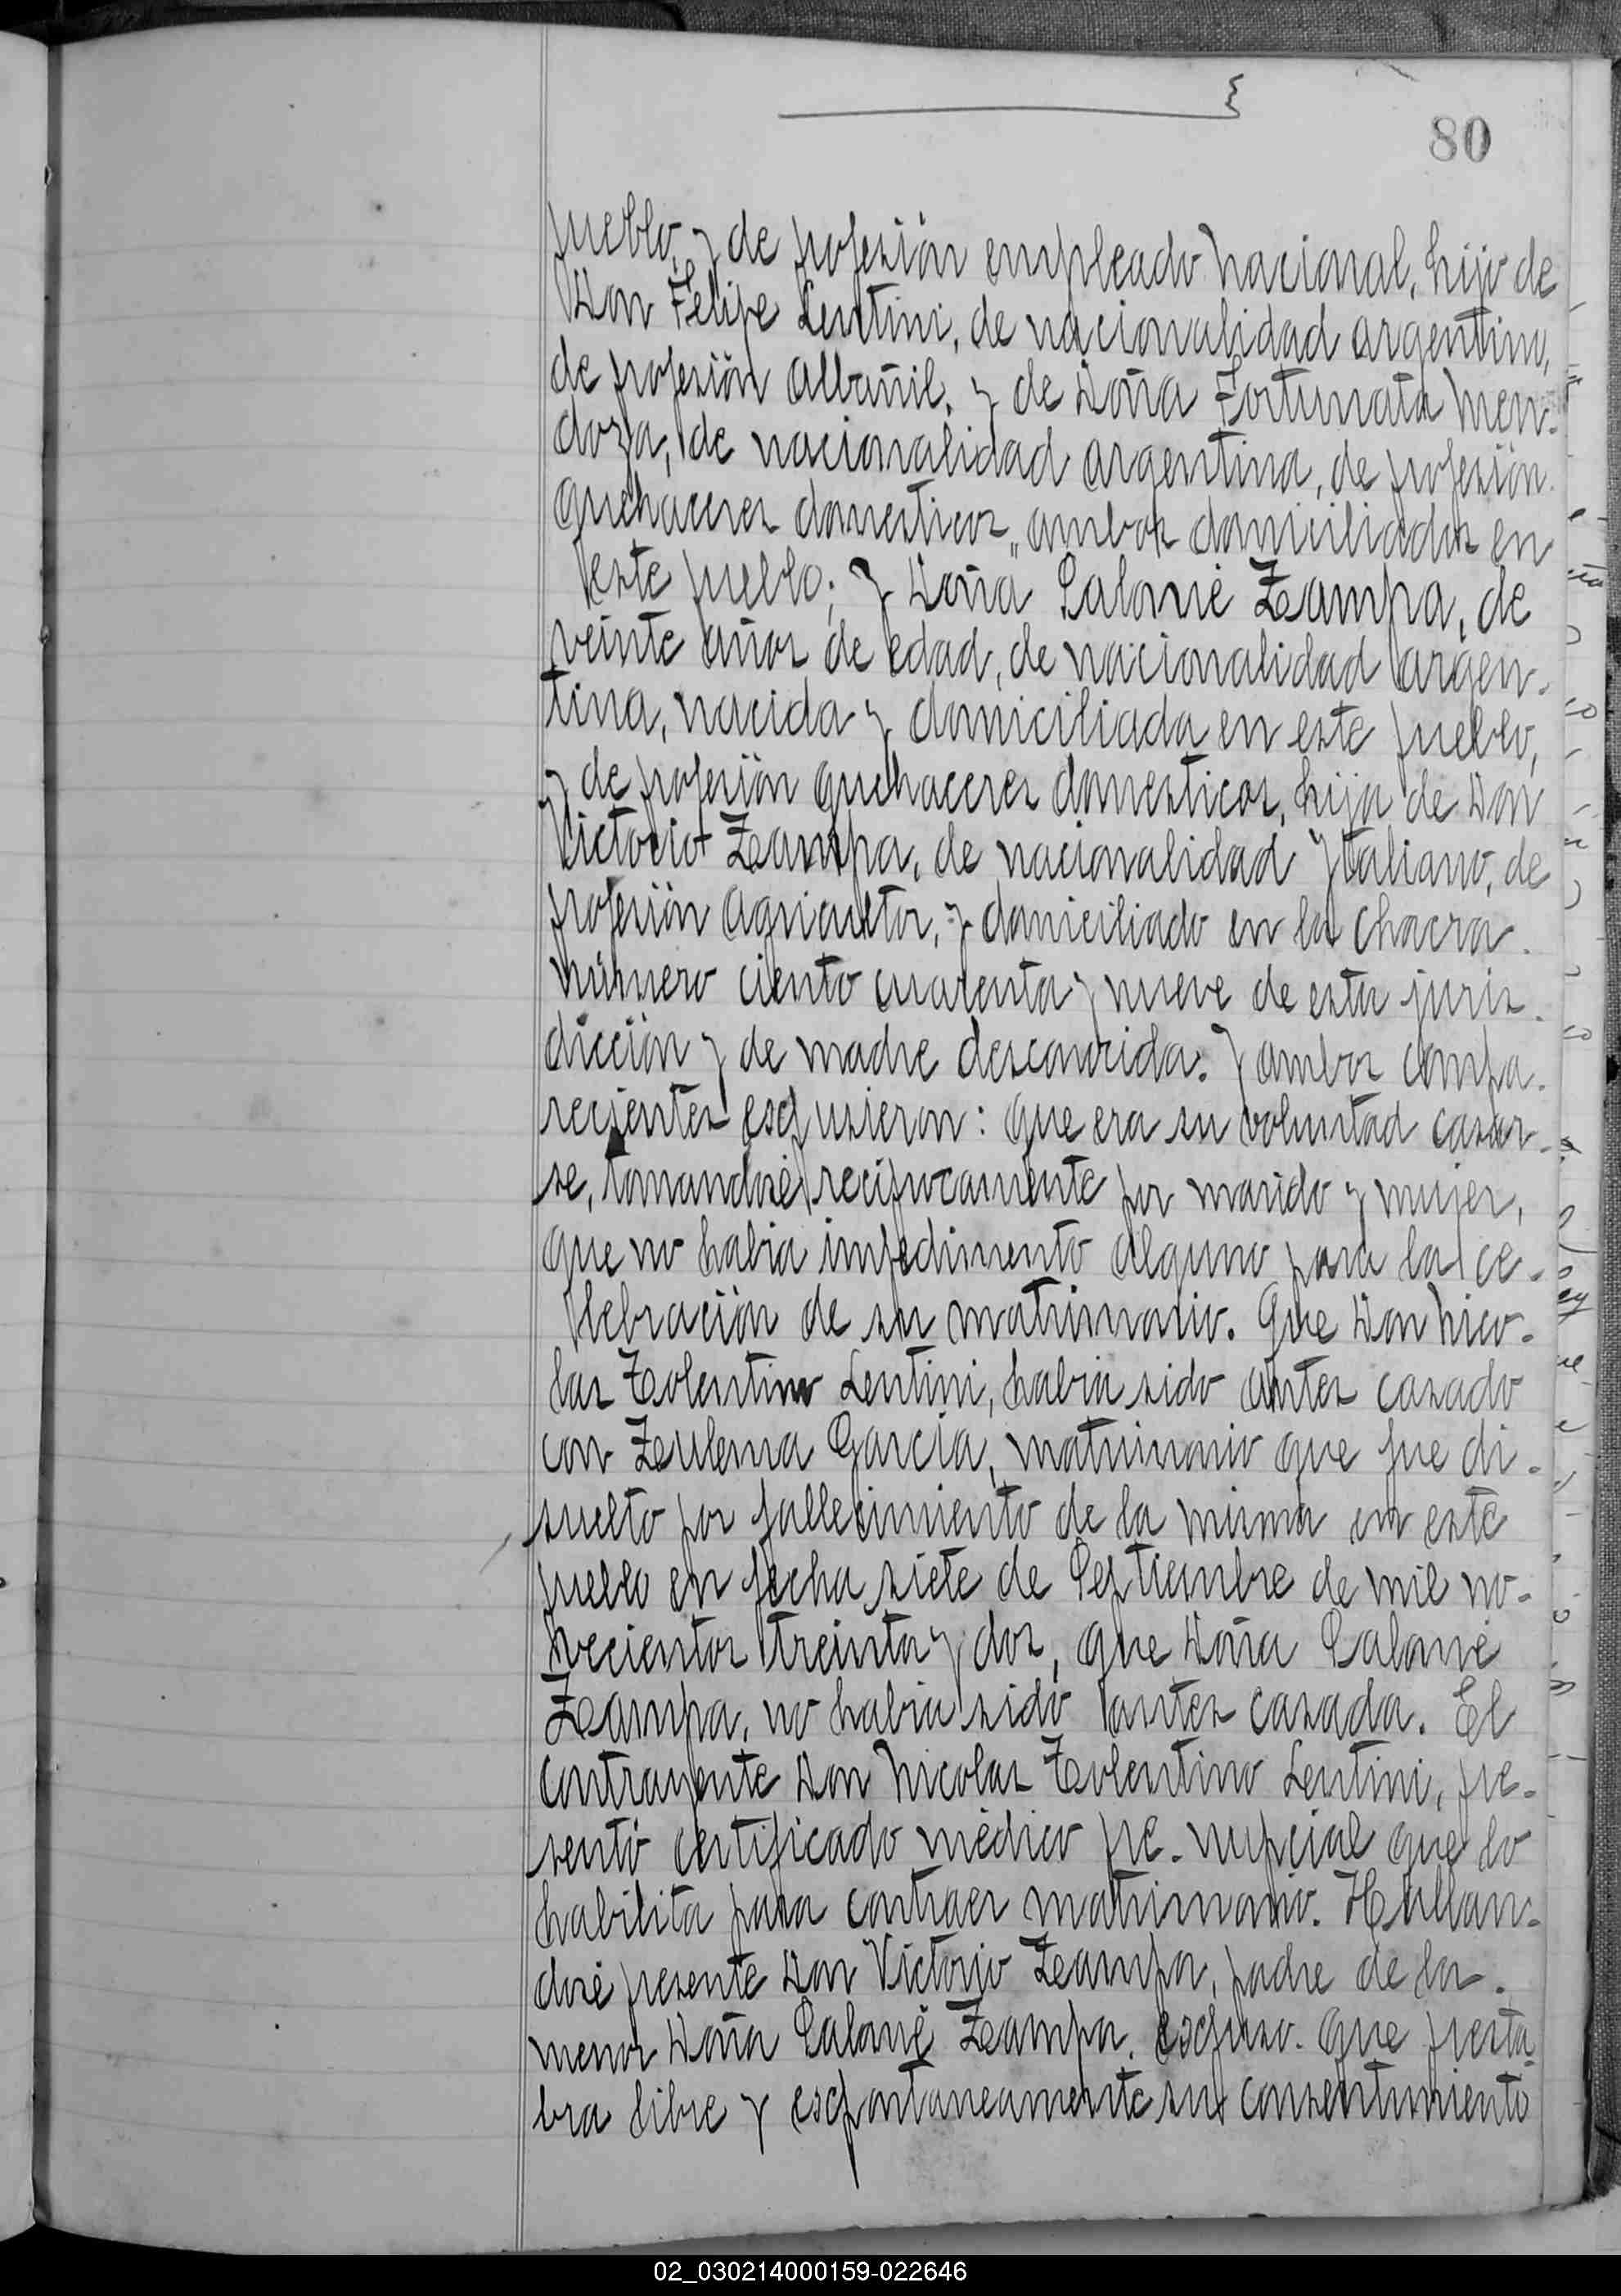 80
pueblo, y de profesión empleado nacional, hijo de
Don Felipe Lentini, de nacionalidad argentino,
de profesión albañil, y de Doña Fortunata Men-
doza, de nacionalidad argentina, de profesión
quehaceres domesticos, ambos domiciliados en
este pueblo; y Doña Salomé Zampa, de
veinte años de edad, de nacionalidad argen-
tina, nacida y domiciliada en este pueblo,
y de profesión quehaceres domesticos, hija de Don
Victorio Zampa, de nacionalidad Ytaliano, de
profesión agricultor, y domiciliado en la chacra
número ciento cuarenta y nueve de esta juris-
dicción y de madre desconocida. Y ambos compa-
recientes expusieron: que era su voluntad casar-
se, tomandose reciprocamente por marido y mujer,
que no habia impedimento alguno para la ce-
lebración de su matrimonio. Que Don Nico-
las Tolentino Lentini, habia sido antes casado
con Zulema García, matrimonio que fue di-
suelto por fallecimiento de la misma en este
pueblo en fecha siete de Septiembre de mil no-
vecientos treinta y dos, que Doña Salomé
Zampa, no habia sido antes casada. El
contrayente Don Nicolas Tolentino Lentini, pre-
sentó certificado médico pre-nupcial que lo
habilita para contraer matrimonio. Hallan-
dose presente Don Victorio Zampa, padre de la
menor Doña Salomé Zampa, expuso. que presta-
bra libre y espontaneamente su consentimiento
02_030214000159-022646